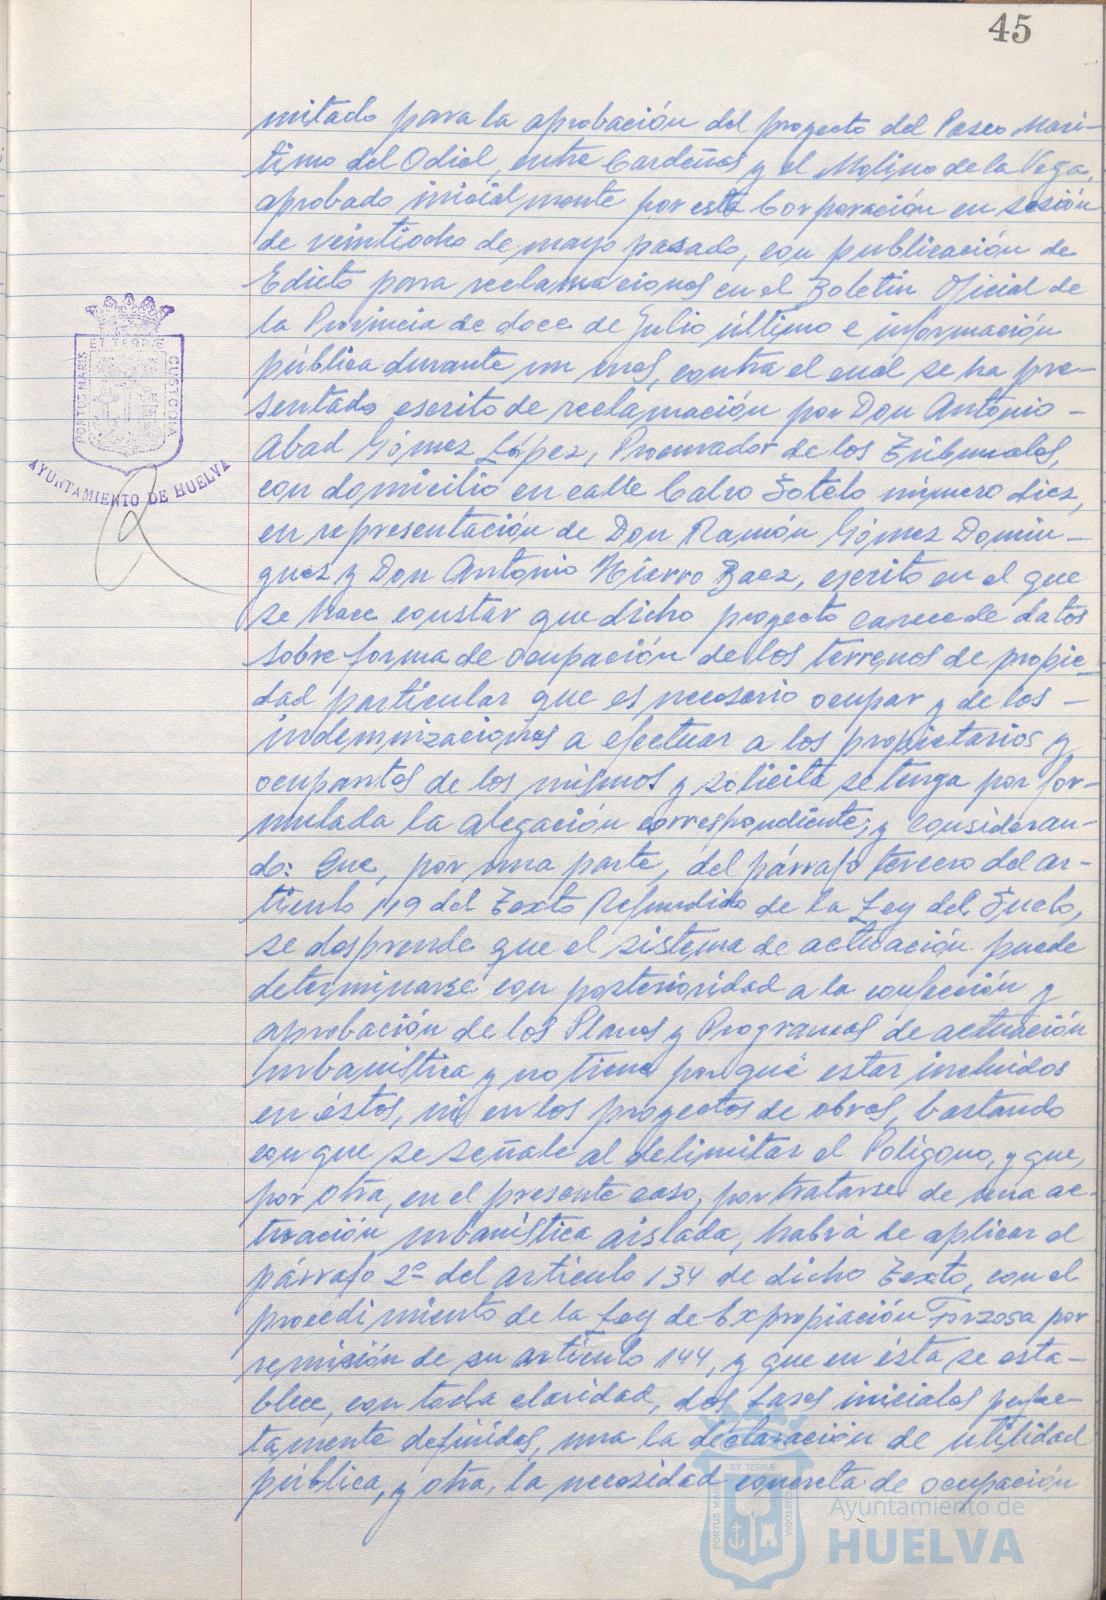 45
mitado para la aprobación del proyecto del Paseo Marí-
timo del Odiel, entre Cardeñas y el Molino de la Vega,
aprobado inicialmente por esta Corporación en sesión
de veintiocho de mayo pasado, con publicación de
Edicto para reclamaciones en el Boletín Oficial de
la Provincia de doce de Julio último e información
pública durante un mes, contra el cual se ha pre-
sentado escrito de reclamación por Don Antonio -
Abad Gómez López, Procurador de los Tribunales,
con domicilio en calle Calvo Sotelo número diez,
en representación de Don Ramón Gómez Domin-
guez y Don Antonio Hierro Baez, escrito en el que
se hace constar que dicho proyecto carece de datos
sobre forma de ocupación de los terrenos de propie-
dad particular que es necesario ocupar y de los -
indemnizaciones a efectuar a los propietarios y
ocupantes de los mismos y solicita se tenga por for-
mulada la alegación correspondiente; y consideran-
do: Que, por una parte, del párrafo tercero del ar-
tículo 119 del Texto Refundido de la Ley del Suelo,
se desprende que el sistema de actuación puede
determinarse con posterioridad a la confección y
aprobación de los Planes y Programas de actuación
urbanística y no tiene por qué estar incluidos
en éstos, ni en los proyectos de obras, bastando
con que se señale al delimitar el Polígono, y que,
por otra, en el presente caso, por tratarse de una ac-
tuación urbanística aislada, habrá de aplicar el
párrafo 2º del artículo 134 de dicho Texto, con el
procedimiento de la Ley de Expropiación Forzosa por
remisión de su artículo 144, y que en ésta se esta-
blece, con toda claridad, dos fases iniciales perfec-
tamente definidas, una la declaración de utilidad
pública, y otra, la necesidad concreta de ocupación
PORTUS MARIS ET TERRÆ CUSTODIA
AYUNTAMIENTO DE HUELVA
PORTUS MARIS ET TERRÆ CUSTODIA
Ayuntamiento de
HUELVA